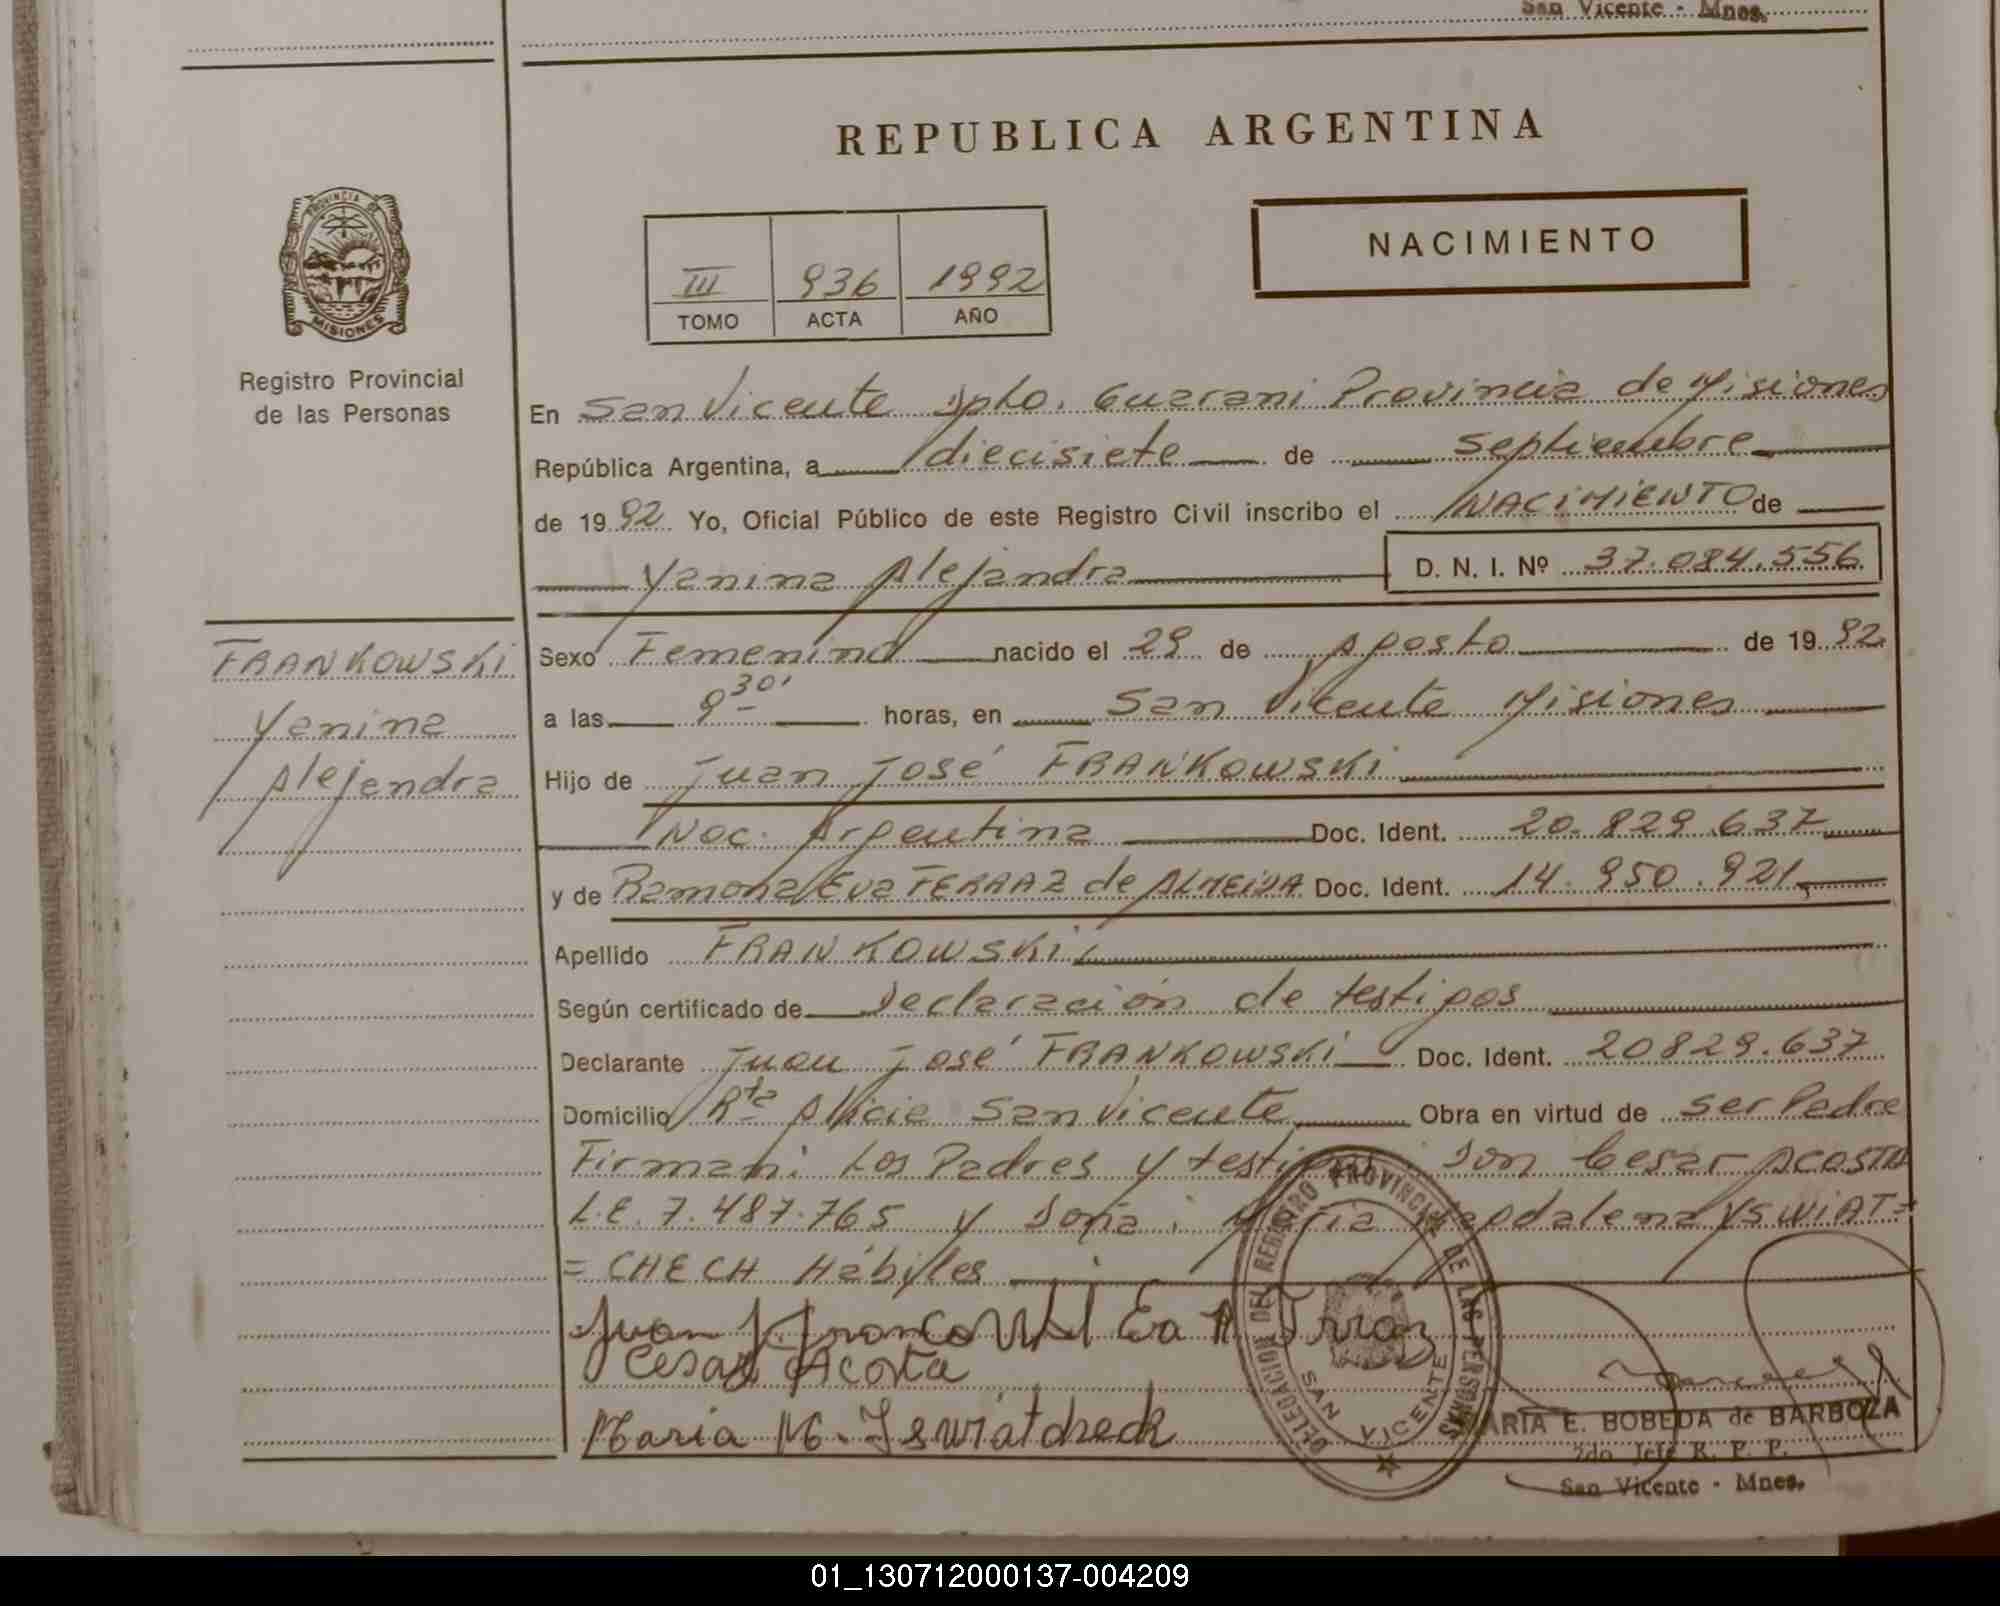 San Vicente - Mnes.
REPUBLICA ARGENTINA
PROVINCIA DE
MISIONES
Registro Provincial
de las Personas
III 936 1992
TOMO ACTA AÑO
NACIMIENTO
En San Vicente Dpto. Guarani Provincia de Misiones
República Argentina, a diecisiete de Septiembre
de 1992 Yo, Oficial Público de este Registro Civil inscribo el NACIMIENTO de
Yanina Alejandra D. N. I. Nº 37.084.556
FRANKOWSKI
Yanina
Alejandra
Sexo Femenino nacido el 29 de Agosto de 1992
a las 9 30' horas, en San Vicente Misiones
Hijo de Juan José FRANKOWSKI
Nac. Argentina Doc. Ident. 20.829.637
y de Ramona Eva FERRAZ de ALMEIDA Doc. Ident. 14.950.921
Apellido FRANKOWSKI
Según certificado de Declaración de testigos
Declarante Juan José FRANKOWSKI Doc. Ident. 20829.637
Domicilio Rta Alicia San Vicente Obra en virtud de Ser Padre
Firman: Los Padres y testigos: Don Cesar ACOSTA
L.E. 7.487.765 y Doña: María Magdalena YSWIAT=
=CHECH Hábiles
Juan J Ea R
Cesar Acosta
Maria M. Iswiatcheck
DELEGACION DEL REGISTRO PROVINCIAL DE LAS PERSONAS
SAN VICENTE
MARIA E. BOBEDA de BARBOZA
2do Jefe R. P. P.
San Vicente - Mnes.
01_130712000137-004209